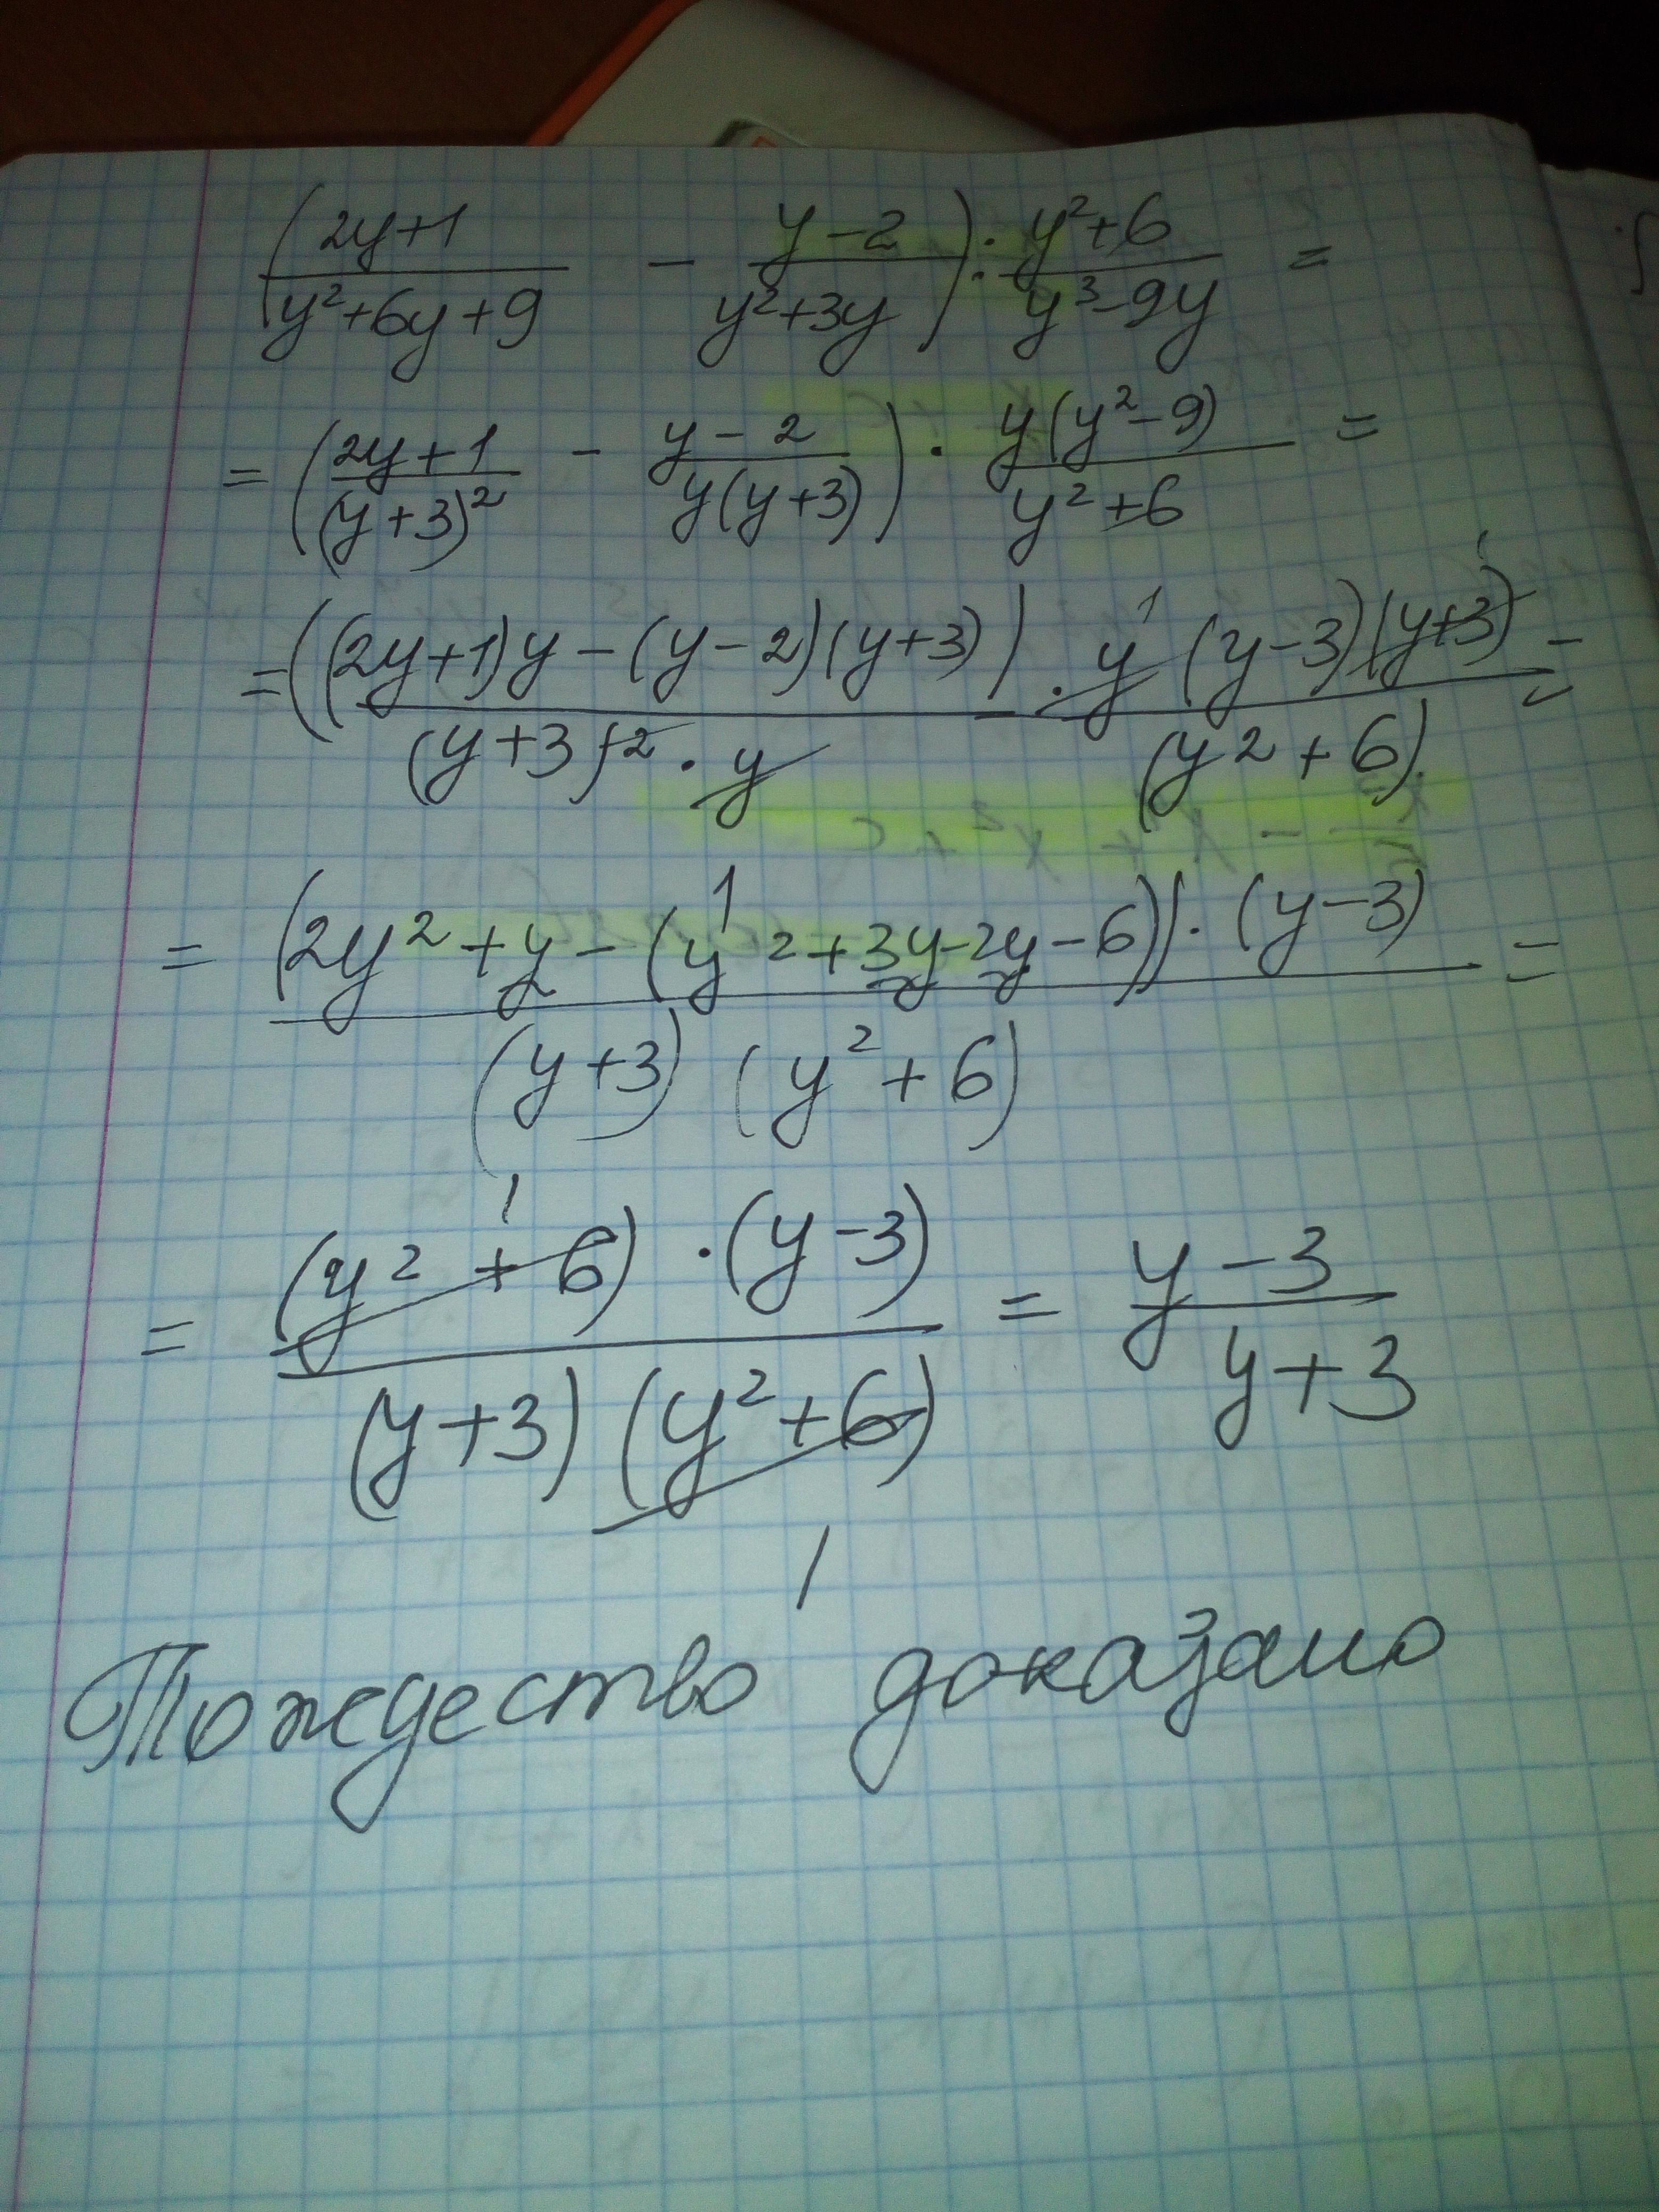 (2y+1)/(y²+6y+9) - (y-2)/(y²+3y)) : (y²+6)/(y³-9y) =
= ((2y+1)/(y+3)² - (y-2)/(y(y+3))) · y(y²-9)/(y²+6) =
= ((2y+1)y-(y-2)(y+3))/((y+3)²·y) · y(y-3)(y+3)/(y²+6) =
= (2y²+y-(y²+3y-2y-6))·(y-3)/((y+3)(y²+6)) =
= (y²+6)·(y-3)/((y+3)(y²+6)) = (y-3)/(y+3)
Тождество доказано